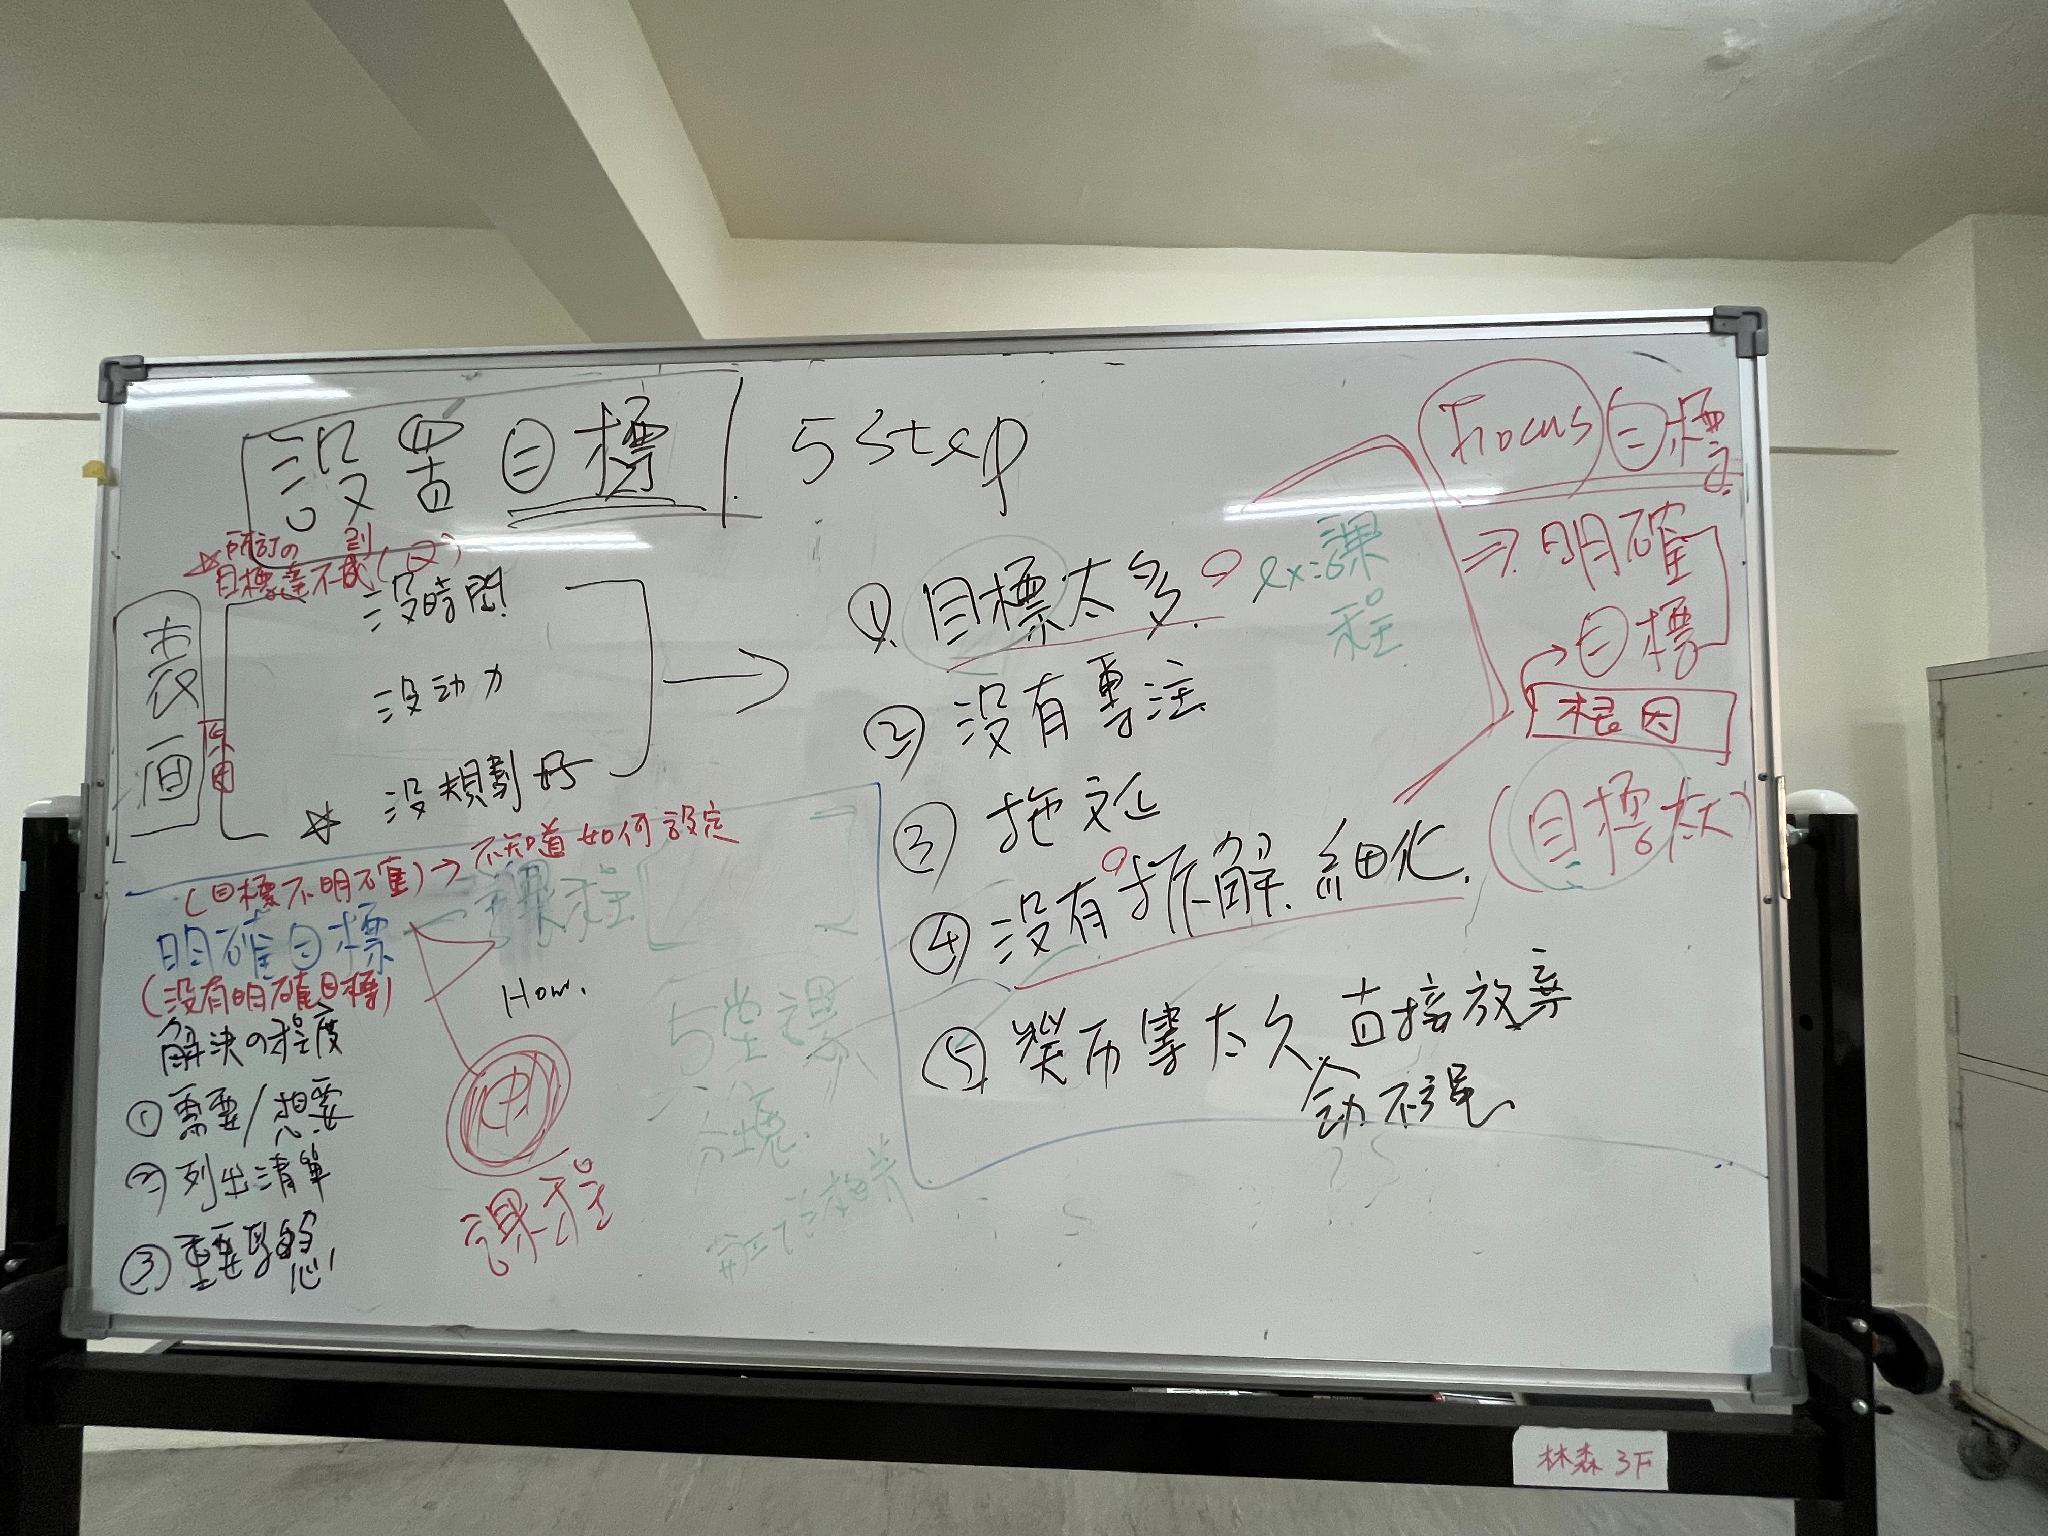 設置目標 5 step
所訂の
目標達不到(又)
表面
原因
沒時間
沒动力
沒規劃好
(目標不明確)→不知道如何設定
明確目標
課程
(沒有明確目標)
解決の程度
① 需要/想要
② 列出清單
③ 重要的
How.
中
課程
5堂課
分塊
① 目標太多
ex:課程
② 沒有專注
③ 拖延
④ 沒有拆解.細化.
⑤ 太久 直接放棄
Focus 目標
⇒ 明確
目標
根因
(目標太大)
林森 3F